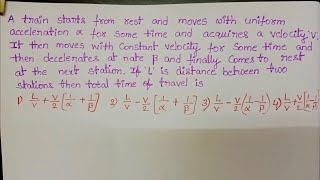 A train starts from rest and moves with uniform
acceleration α for some time and acquires a velocity 'V'.
It then moves with constant velocity for some time and
then decelerates at rate β and finally comes to rest
at the next station. If 'L' is distance between two
stations then total time of travel is
1) L/V + V/2 [1/α + 1/β] 2) L/V - V/2 [1/α + 1/β] 3) L/V - V/2 (1/α - 1/β) 4) L/V + V/2 [1/α - 1/β]